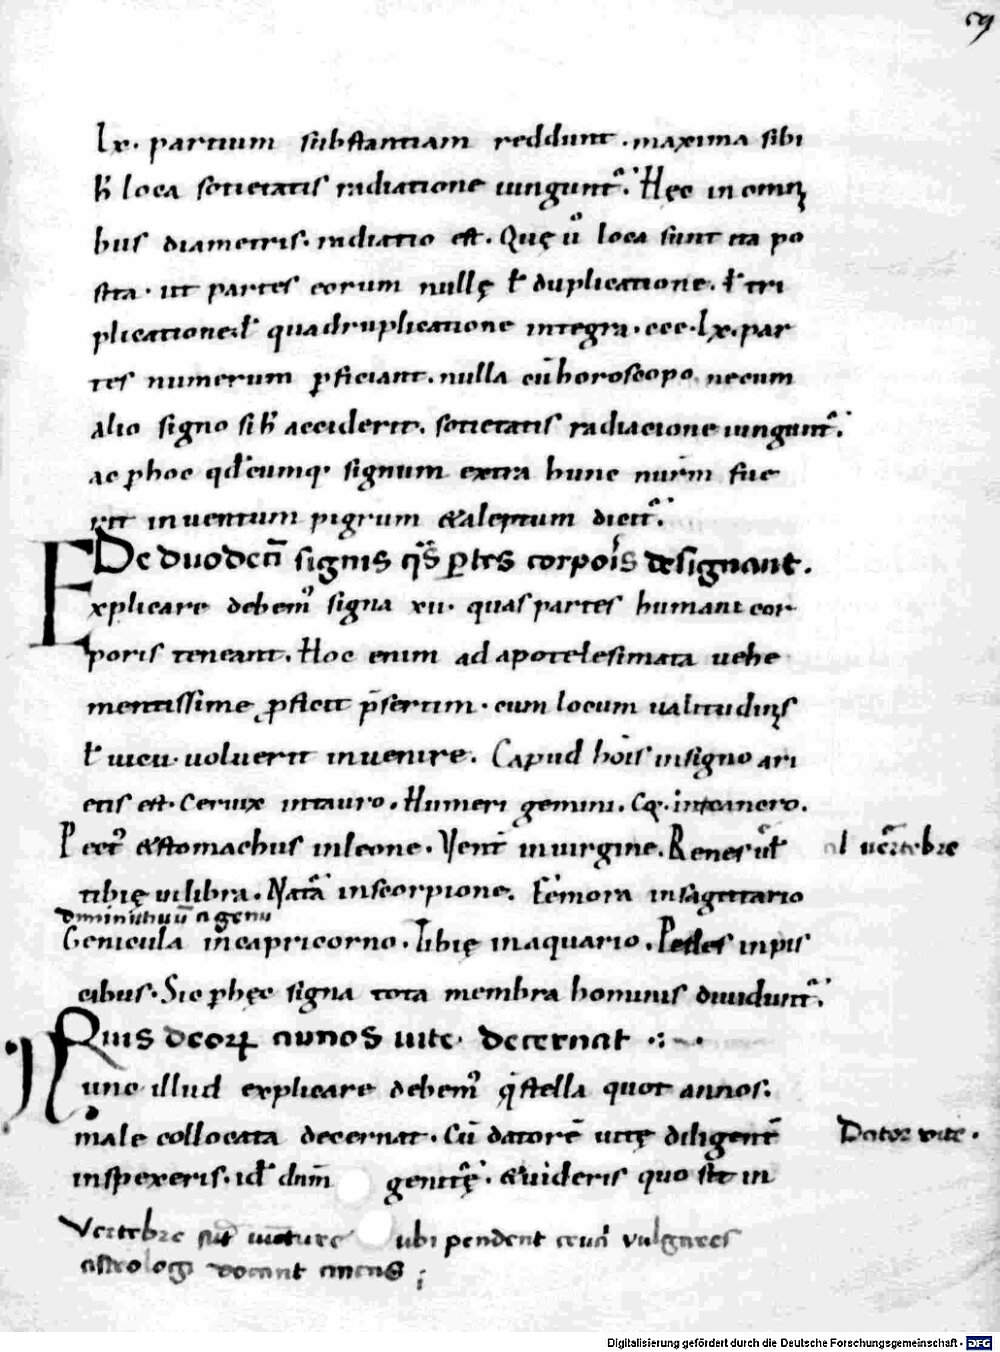 59
lx. partium substantiam reddunt. maxima sibi
h̄ loca societatis radiatione iungunt᷑. Hęc in omnı
bus diametris. radiatio est. Quę u̾ loca sunt ita po
sita. ut partes eorum nullę ł duplicatione. ł tri
plicatione. ł quadruplicatione integra. ccc. lx. par
tes numerum ꝑficiant. nulla cū horoscopo. nec cum
alio signo si h̄ acciderit. societatis radiacione iungunt᷑.
ac ꝑ hoc qđcumq; signum extra hunc num̄ fue
rit inuentum pigrum & aleptum dicit᷑.
De duodecī signis q̄s ꝑtes corpoıs designant.
Explicare debem᾽ signa xii. quas partes humani cor
poris teneant. Hoc enim ad apotelesimata uehe
mentissime ꝓficit p̄sertim. cum locum ualitudinis
ł uicii. uoluerit inuenire. Capud hoīs in signo ari
etis est. Ceruix in tauro. Humeri gemini. Cor in cancro.
Pect᾽ & stomachus in leone. Vent̄ in uirgine. Renes ł
al uertebre
tibię in libra. Natā in scorpione. Femora in sagittario
diminitiuū a genu
Genicula in capricorno. Tibię in aquario. Pedes in pis
cibus. Sic ꝑ hęc signa tota membra hominis diuidunt᷑.
Quis deoꝝ annos uite decernat
Nunc illud explicare debem᾽ q̄ stella quot annos.
male collocata decernat. Cū datorē uitę diligent̄
Dator vite.
inspexeris. id̄ dnm̄ genit᷑ę. & uideris quo sit in
Vertebre sūt iuncture ubi pendent crura vulgares
astrologi vocant ancas
Digitalisierung gefördert durch die Deutsche Forschungsgemeinschaft - DFG